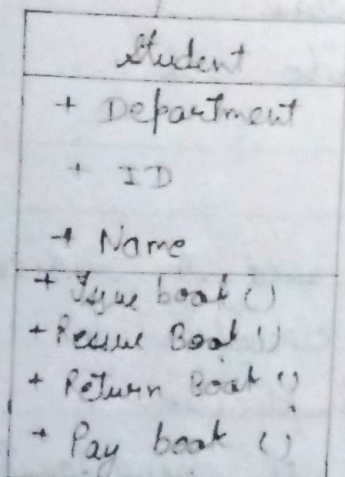 Student
+ Department
+ ID
+ Name
+ Issue book ()
+ Book ()
+ Return Book ()
+ Pay book ()